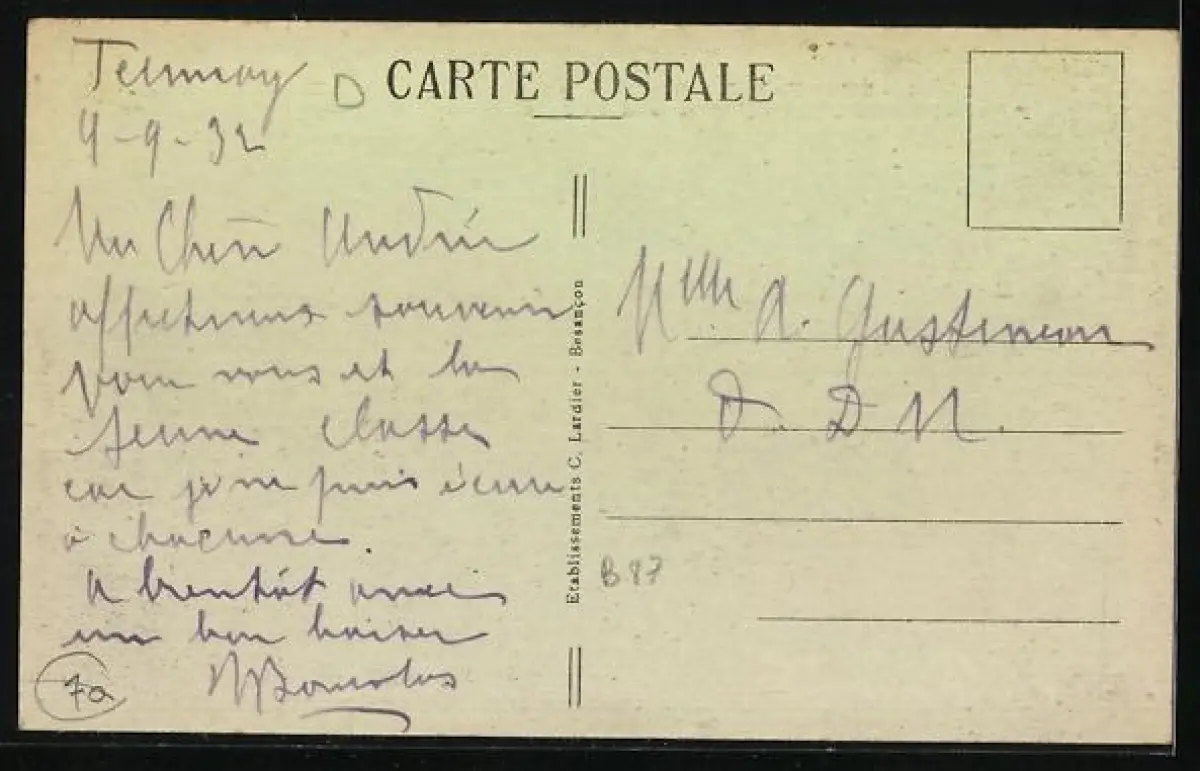 CARTE POSTALE
Ternay
4-9-32
Ma Chère Andrée
affectueux souvenir
pour vous et la
jeune classe
car je ne puis écrire
à chacune.
A bientôt avec
un bon baiser
Melle A.
D. D M.
Etablissements C. Lardier - Besançon
B 87
7a